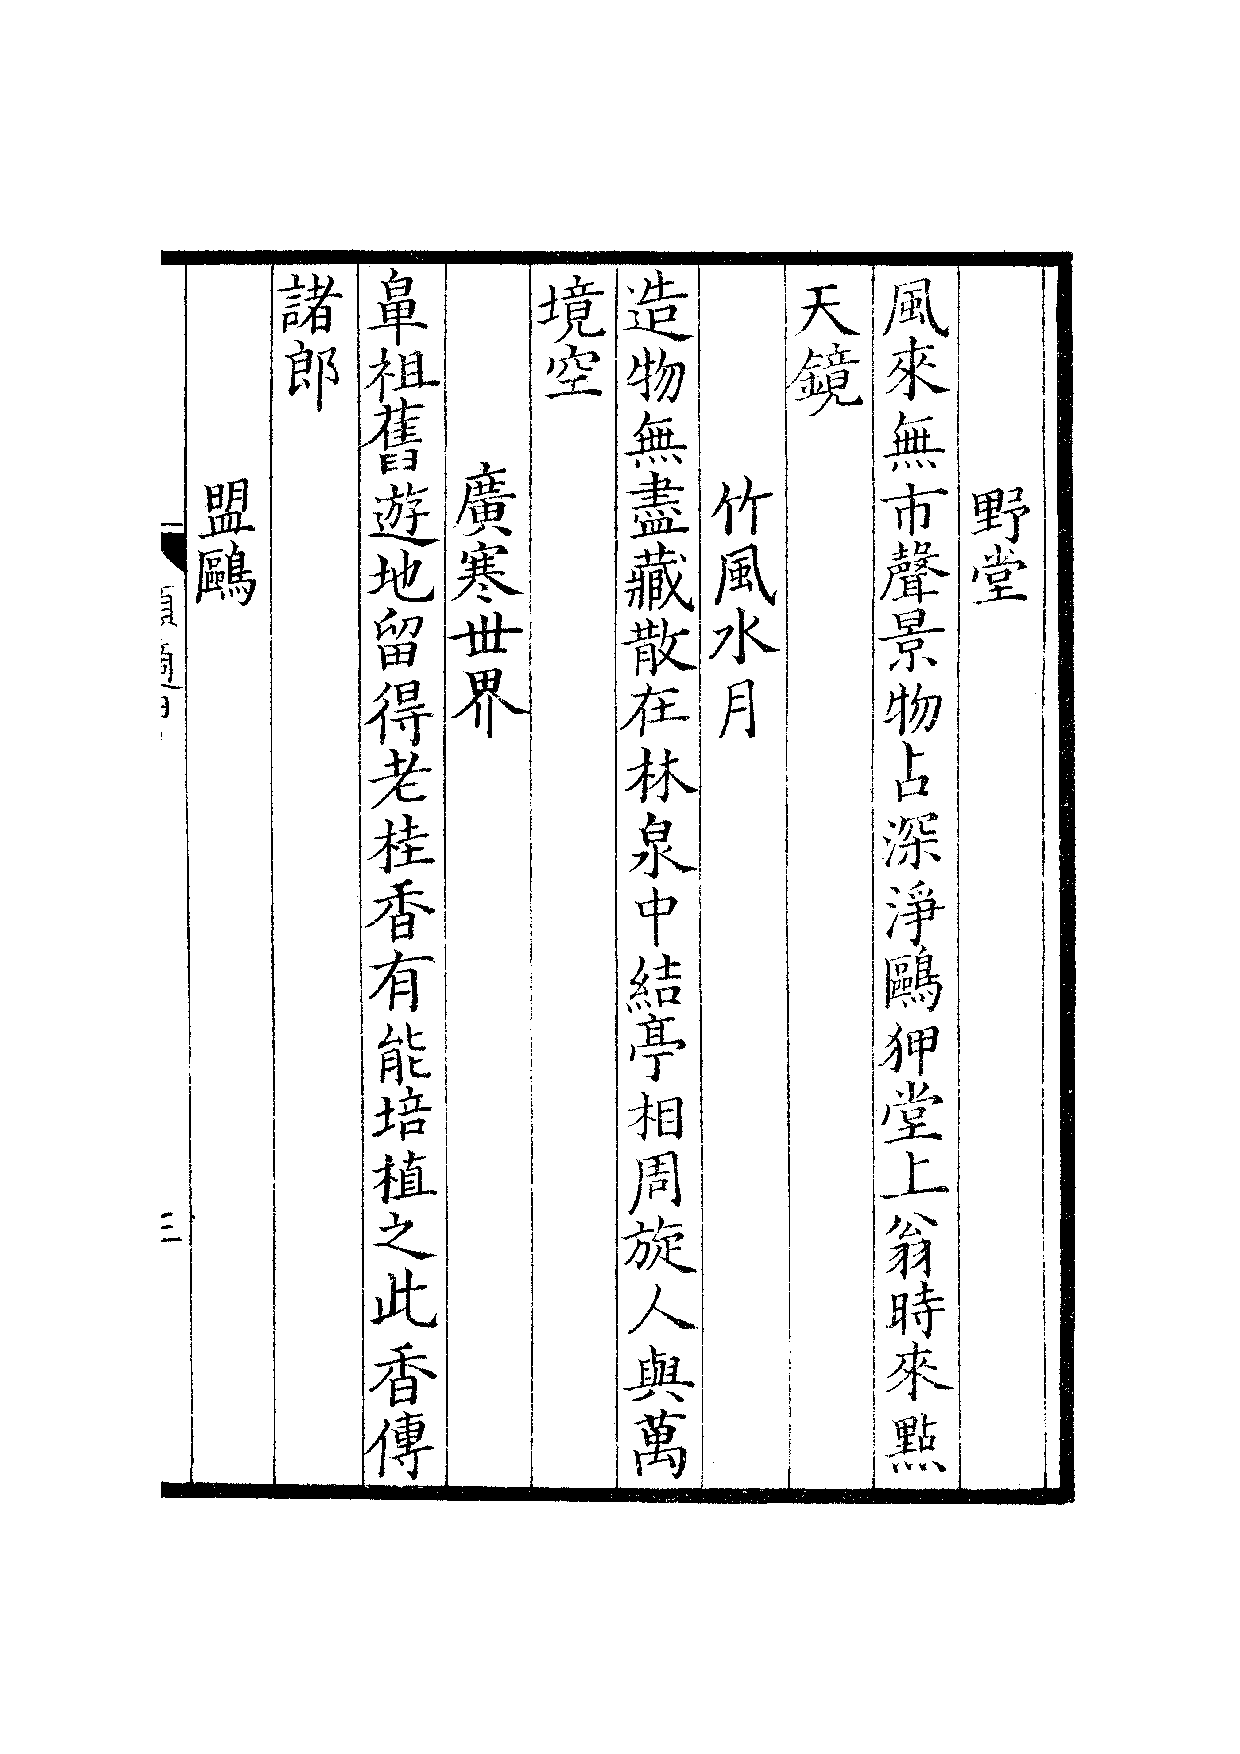 野堂
風來無市聲景物占深淨鷗狎堂上翁時來點
天鏡
竹風水月
造物無盡藏散在林泉中結亭相周旋人與萬
境空
廣寒丗界
鼻祖舊遊地留得老桂香有能培植之此香傳
諸郎
盟鷗